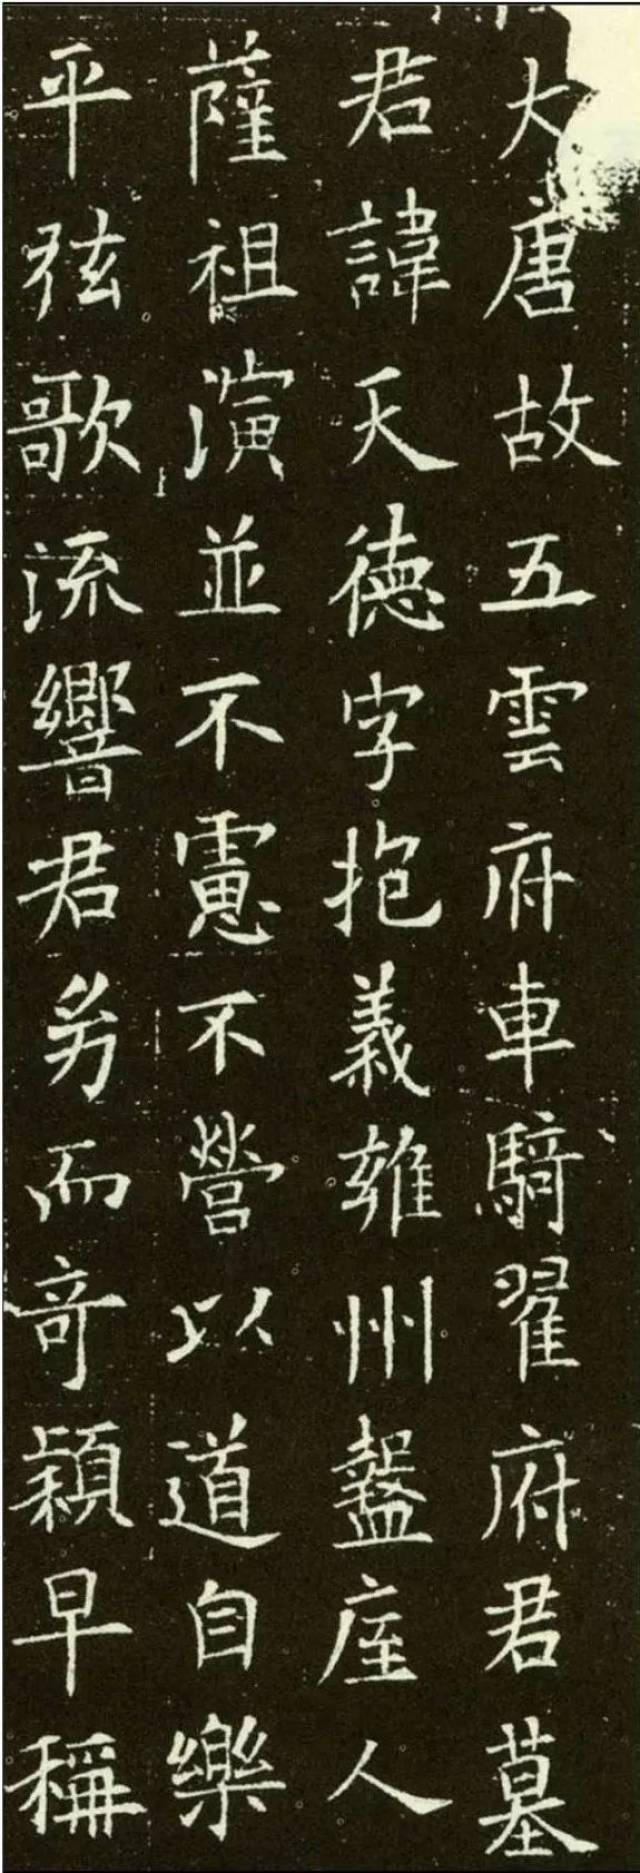 大唐故五雲府車騎翟府君墓
君諱天德字抱義雍州盩厔人
薩祖演並不慮不營以道自樂
平弦歌流響君㓜而奇穎早稱